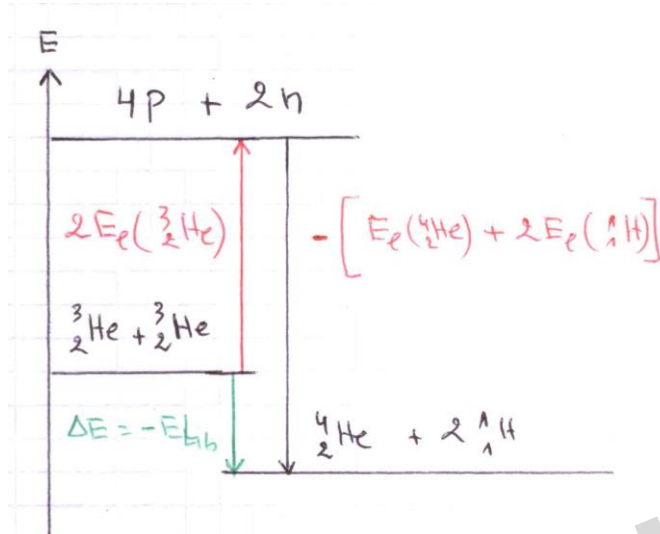 E
4p + 2n
2E_ℓ(³₂He)
-[E_ℓ(⁴₂He) + 2E_ℓ(¹₁H)]
³₂He + ³₂He
ΔE = -E_Lib
⁴₂He + 2 ¹₁H